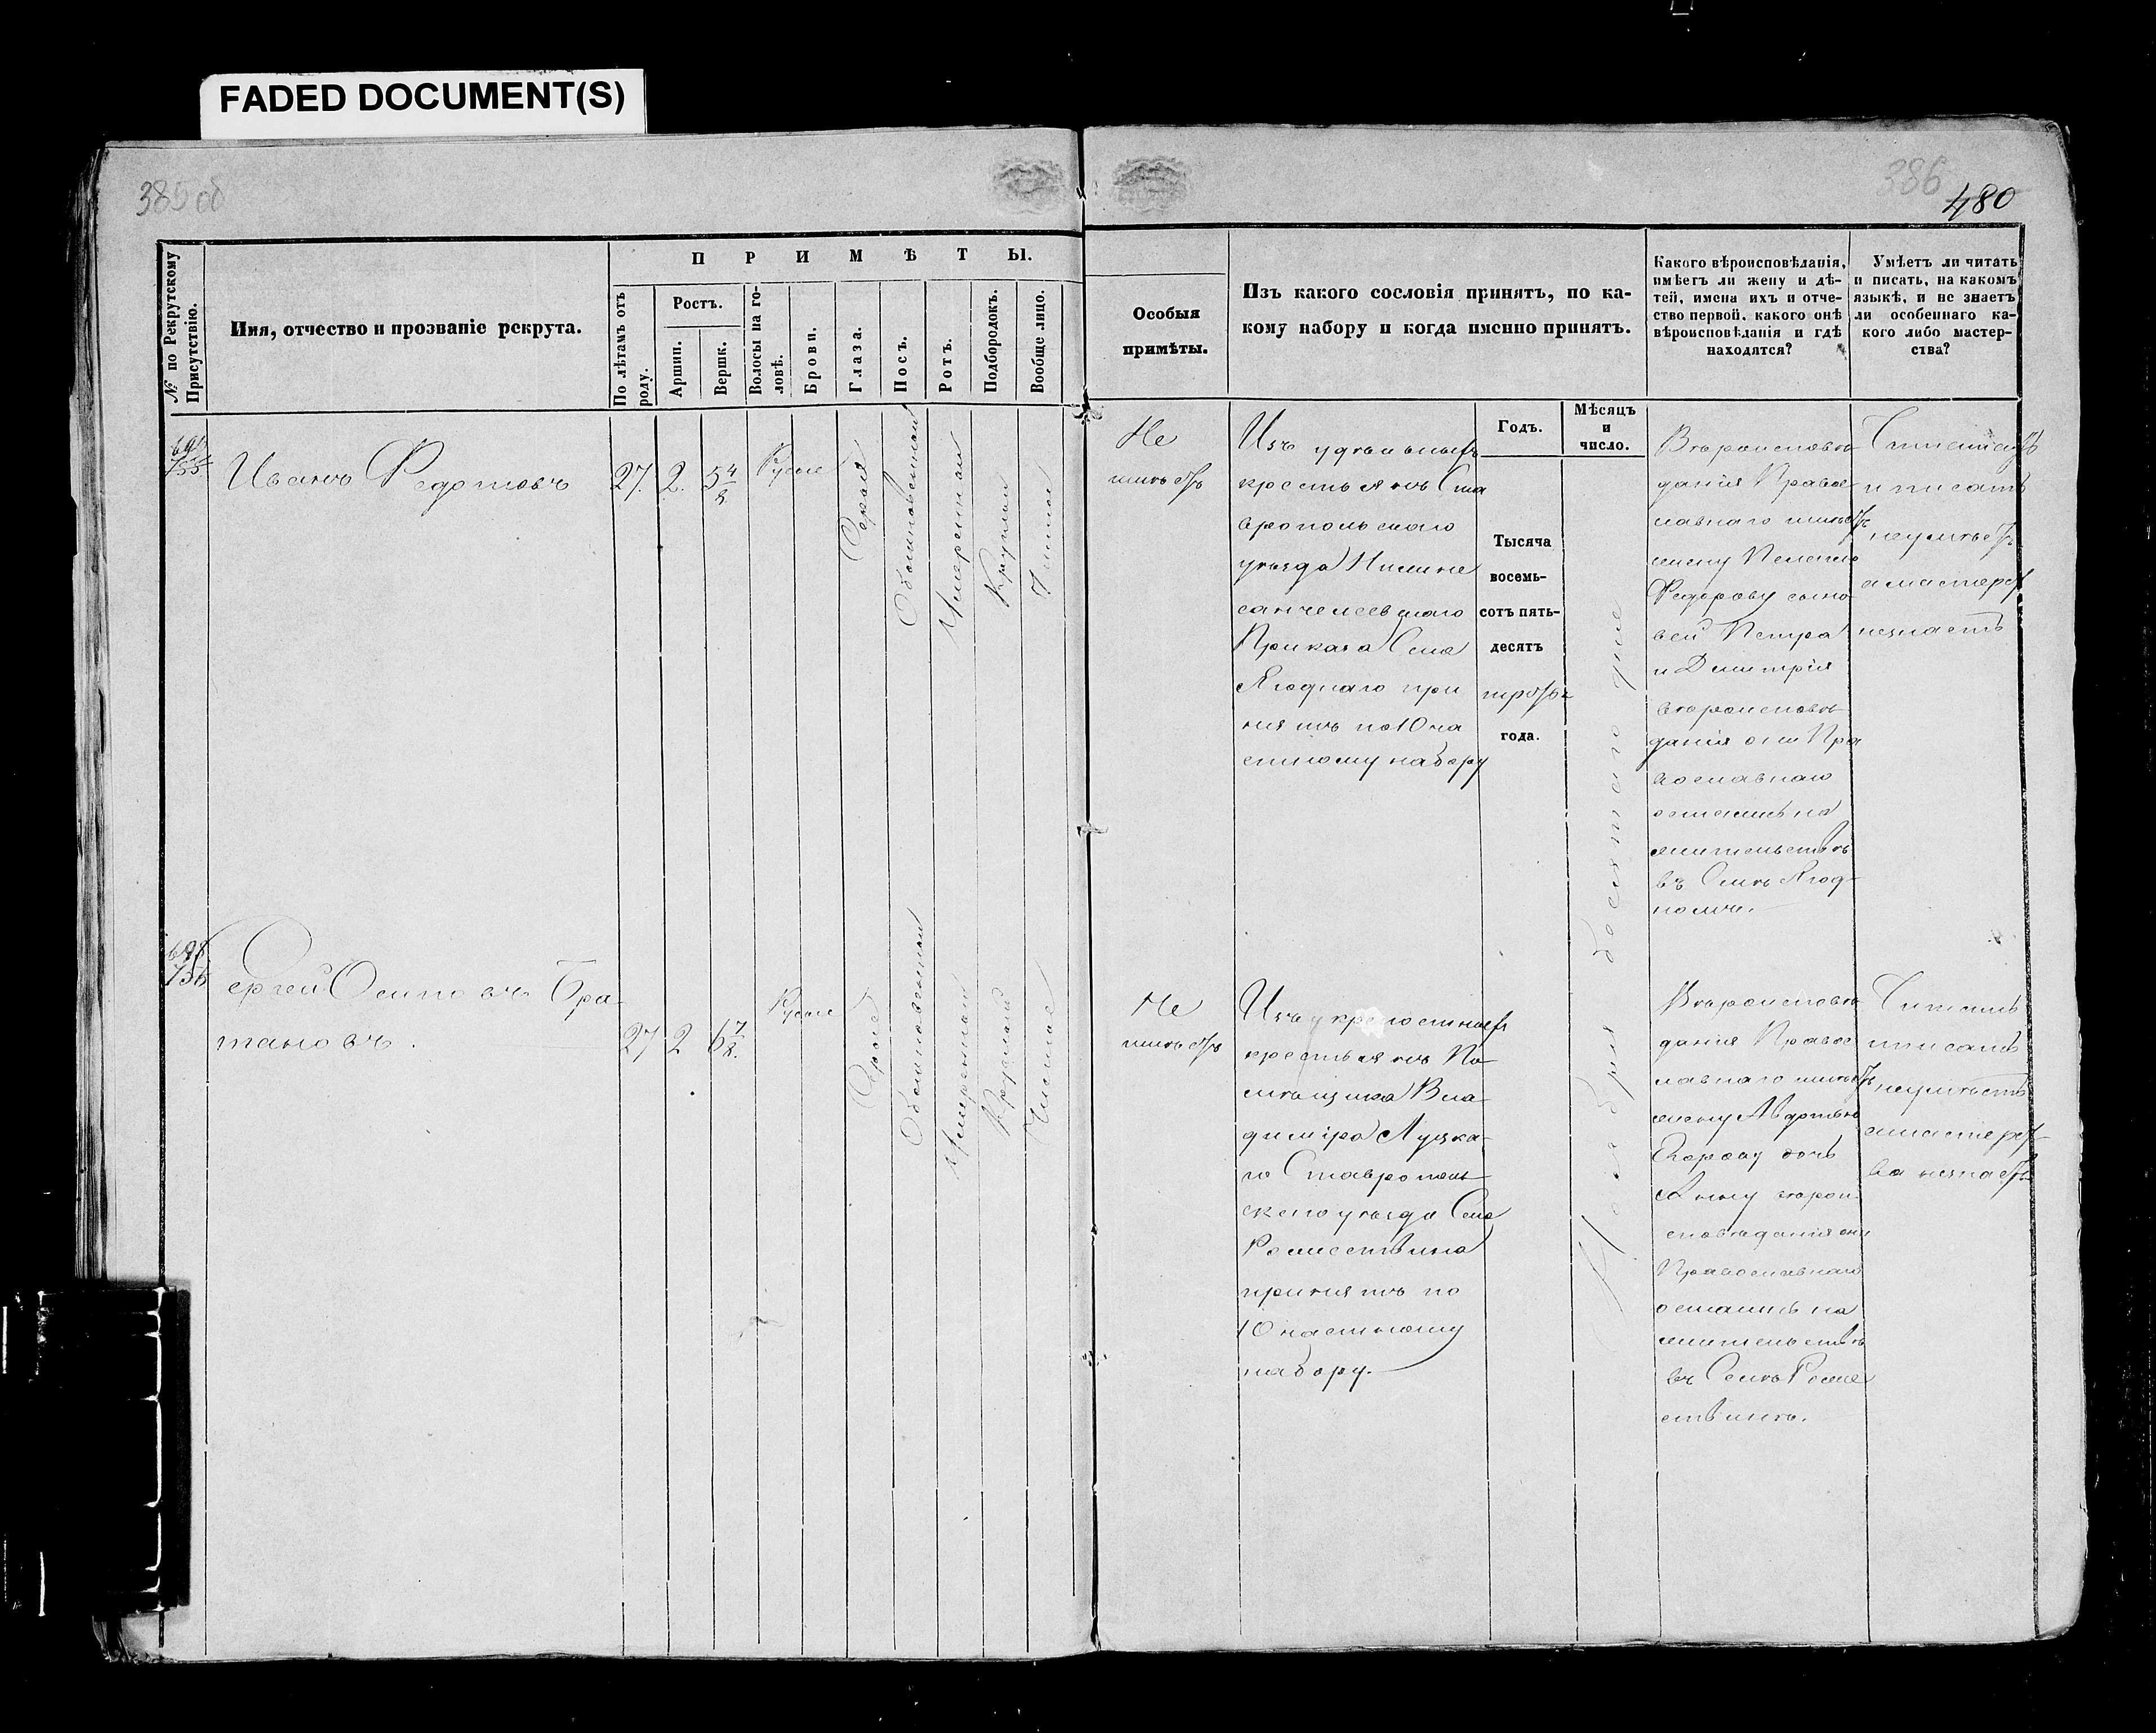 FADED DOCUMENT(S)
385 об
386
480
№ по Рекрутскому Присутствію.
Имя, отчество и прозваніе рекрута.
ПРИМѢТЫ.
По лѣтамъ отъ роду.
Ростъ.
Аршин.
Вершк.
Волосы на головѣ.
Брови.
Глаза.
Носъ.
Ротъ.
Подбородокъ.
Вообще лицо.
Особыя
примѣты.
Изъ какого сословія принятъ, по ка-
кому набору и когда именно принятъ.
Годъ.
Мѣсяцъ
и
число.
Какого вѣроисповѣданія,
имѣетъ ли жену и дѣ-
тей, имена ихъ и отче-
ство первой, какого онѣ
вѣроисповѣданія и гдѣ
находятся?
Умѣетъ ли читать
и писать, на какомъ
языкѣ, и не знаетъ
ли особеннаго ка-
кого либо мастер-
ства?
755
Иванъ Федотовъ
27. 2. 5 4/8
Русые
Серые
Обыкновенный
Умеренный
Круглый
Чистое
Не
имѣетъ
Изъ удельныхъ
крестьянъ Ста
вропольскаго
уѣзда Нижне
санчелеевскаго
Приказа Села
Ягоднаго при
нятъ по 10 ча
стному набору
Тысяча
восемь-
сотъ пять-
десятъ
третья
года.
Ноября десятаго дня
Вѣроисповѣ
данія Право
славнаго имѣетъ
жену Пелагею
Федорову сыно
вей Петра
и Дмитрія
вѣроисповѣ
данія они Пра
вославнаго
остались на
жительствѣ
въ Селѣ Ягод-
номъ.
Читать
и писать
неумѣетъ
а мастерст
незнаетъ
698
756
Сергей Осиповъ Бра
тановъ.
27 2 6 7/8.
Русые
Серые
Обыкновенный
Умеренный
Круглый
Чистое
Не
имѣетъ
Изъ крепостныхъ
крестьянъ По
мѣщика Вла
димира Луцка-
го Ставрополь
скаго уѣзда Села
Рожествина
принятъ по
10 частному
набору.
Вѣроисповѣ
данія Право
славнаго имѣетъ
жену Авдотью
Егорову дочь
Анну вѣрои
сповѣданія они
Православнаго
остались на
жительствѣ
въ Селѣ Роже
ствинѣ.
Читать
и писать
неумѣетъ
а мастерст
ва незнаетъ